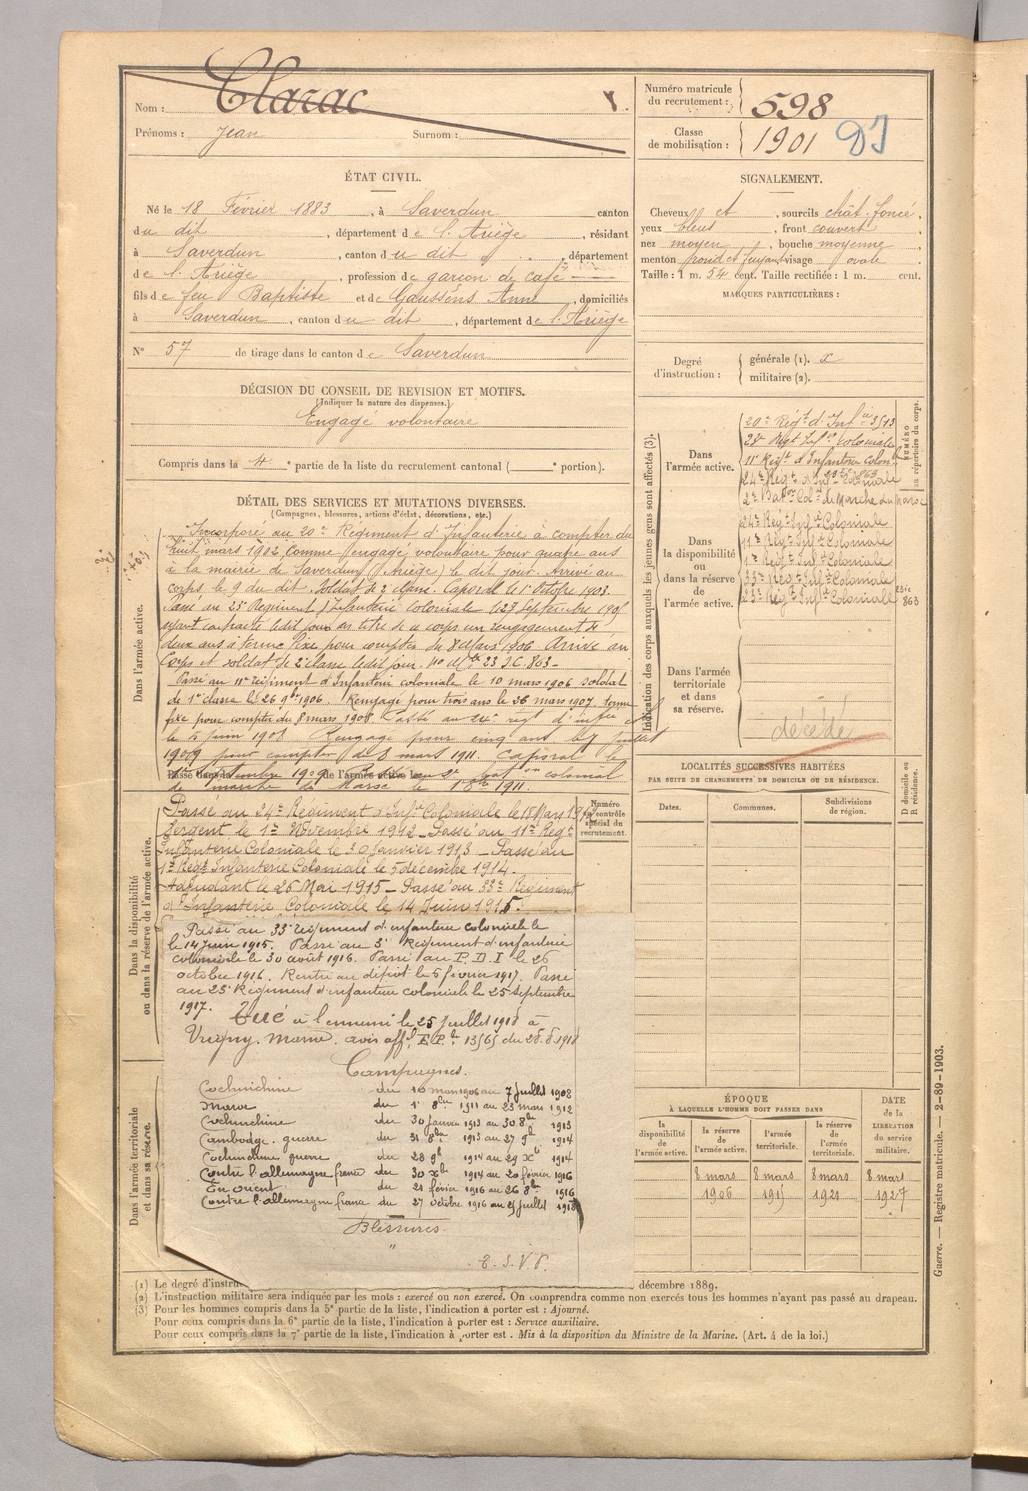 Nom : Clarac
Prénoms : Jean Surnom :
Numéro matricule du recrutement : 598
Classe de mobilisation : 1901
ÉTAT CIVIL.
Né le 18 Février 1883, à Saverdun canton
du dit, département de l'Ariège, résidant
à Saverdun, canton du dit, département
de l'Ariège, profession de garçon de café
fils de feu Baptiste et de Gaussens Anne, domiciliés
à Saverdun, canton du dit, département de l'Ariège
N° 57 de tirage dans le canton de Saverdun
SIGNALEMENT.
Cheveux et, sourcils chât. foncé,
yeux bleus, front couvert,
nez moyen, bouche moyenne,
menton rond et fuyant visage ovale.
Taille : 1 m. 54 cent. Taille rectifiée : 1 m. cent.
MARQUES PARTICULIÈRES :
Degré d'instruction : générale (1). x
militaire (2).
DÉCISION DU CONSEIL DE REVISION ET MOTIFS.
(Indiquer la nature des dispenses.)
Engagé volontaire
Compris dans la 4e partie de la liste du recrutement cantonal ( e portion).
DÉTAIL DES SERVICES ET MUTATIONS DIVERSES.
(Campagnes, blessures, actions d'éclat, décorations, etc.)
Dans l'armée active.
Incorporé au 20e Régiment d'Infanterie à compter du
huit mars 1902 comme engagé volontaire pour quatre ans
à la mairie de Saverdun (Ariège) le dit jour. Arrivé au
corps le 9 du dit. Soldat de 2e classe. Caporal le 1er Octobre 1903.
Passé au 23e Régiment d'Infanterie Coloniale le 23 septembre 1905
ayant contracté ledit jour au titre de ce corps un rengagement de
deux ans à terme fixe pour compter du 8 Mars 1906 Arrivé au
Corps et soldat de 2e classe ledit jour. No Mle 23 I.C. 863-
Passé au 11e régiment d'Infanterie coloniale le 10 mars 1906 soldat
de 1e classe le 26 9bre 1906. Rengagé pour trois ans le 26 mars 1907, terme
fixe pour compter du 8 mars 1908. Passé au 24e régt d'infrie Cle
le 5 juin 1908 Rengagé pour cinq ans le juillet
1909 pour compter du 8 mars 1911. Caporal le
septembre 1909 Passé au 2e baton colonial
de marche du Maroc le 1 8bre 1911.
Dans la disponibilité ou dans la réserve de l'armée active.
Numéro au contrôle spécial du recrutement.
Passé au 24e Régiment d'Infie Coloniale le 18 Mars 1912
Sergent le 1er Novembre 1912 - Passé au 11e Régt
Infanterie Coloniale le 30 janvier 1913 - Passé au
1er Régt Infanterie Coloniale le 5 décembre 1914.
Adjudant le 26 Mai 1915 - Passé au 33e Régiment
d'Infanterie Coloniale le 14 Juin 1915.
Passé au 33e régiment d'infanterie coloniale le
le 14 juin 1915. Passé au 3e Régiment d'infanterie
coloniale le 30 août 1916. Passé au P.D.I le 26
octobre 1916. Rentré au dépôt le 5 février 1917. Passé
au 23e Régiment d'infanterie coloniale le 25 septembre
1917. Tué à l'ennemi le 25 juillet 1918 à
Vrigny. Marne. avis offl
Campagnes.
Cochinchine du 10 mars 1906 au 7 juillet 1908
Maroc du 1er 8bre 1911 au 23 mars 1912
Cochinchine du 30 janvier 1913 au 30 8bre 1913
Cambodge. guerre du 31 8bre 1913 au 27 9bre 1914
Cochinchine guerre du 28 9bre 1914 au 29 Xbre 1914
Contre l'allemagne france du 30 Xbre 1914 au 20 février 1916
En orient du 21 février 1916 au 26 8bre 1916
Contre l'allemagne france du 27 octobre 1916 au 25 juillet 1918
Blessures.
"
T. S. V. P.
Dans l'armée territoriale et dans sa réserve.
Indication des corps auxquels les jeunes gens sont affectés (3).
NUMÉRO au répertoire du corps.
Dans l'armée active.
20e Régt d'Infie 3513
23e Régt Infie Coloniale
11e Régt d'Infanterie Colon.
24e Régt d'Infie Coloniale
2e Baton Colal de Marche du Maroc
Dans la disponibilité ou dans la réserve de l'armée active.
24e Régt Infie Coloniale
11e Régt Infie Coloniale
1er Régt Infie Coloniale
33e Régt Infie Coloniale
23e Régt Infie Coloniale
863
Dans l'armée territoriale et dans sa réserve.
décédé
LOCALITÉS SUCCESSIVES HABITÉES
PAR SUITE DE CHANGEMENTS DE DOMICILE OU DE RÉSIDENCE.
Dates. Communes. Subdivisions de région. D domicile ou R résidence.
ÉPOQUE
À LAQUELLE L'HOMME DOIT PASSER DANS
DATE de la LIBÉRATION du service militaire.
la disponibilité de l'armée active. la réserve de l'armée active. l'armée territoriale. la réserve de l'armée territoriale.
8 mars 1906 8 mars 1915 8 mars 1921 8 mars 1927
Guerre. — Registre matricule. — 2-89-1903.
(1) Le degré d'instruc décembre 1889.
(2) L'instruction militaire sera indiquée par les mots : exercé ou non exercé. On comprendra comme non exercés tous les hommes n'ayant pas passé au drapeau.
(3) Pour les hommes compris dans la 5e partie de la liste, l'indication à porter est : Ajourné.
Pour ceux compris dans la 6e partie de la liste, l'indication à porter est : Service auxiliaire.
Pour ceux compris dans la 7e partie de la liste, l'indication à porter est . Mis à la disposition du Ministre de la Marine. (Art. 4 de la loi.)